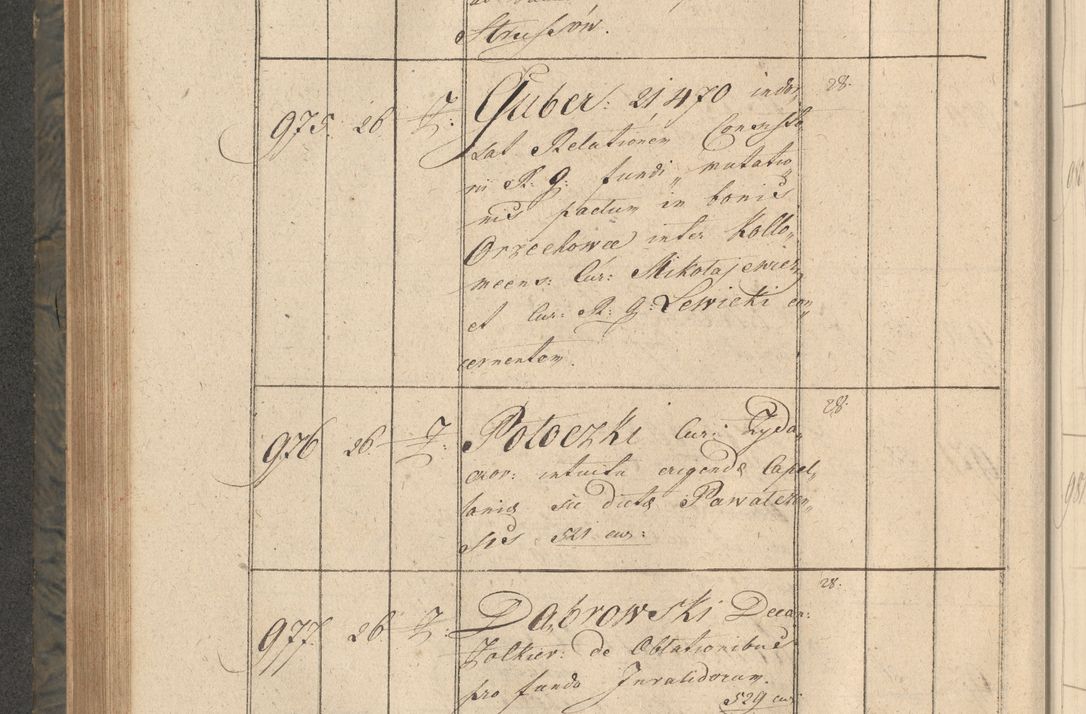 Strussów.
975. 26 7/ Guber: 21470 indo„ 28.
lat Relationem Consisto
rii R: G: fundi„ mutatio„
nis pactum in bonis
Orzechowce inter Kollo„
meens: Cur: Mikołajewicz
et Cur: R: G: Lewicki con„
cernentem.
976 26 7/ Potoczki Cur: Zyda„ 28.
czov: intuitu erigendæ Capel„
laniæ sic dictæ Pawalcen„
sis 521 cur:
977. 26 7/ Dąbrowski Decan: 28.
Żolkiev: de Oblationibus
pro fundo Invalidorum.
529 cur: